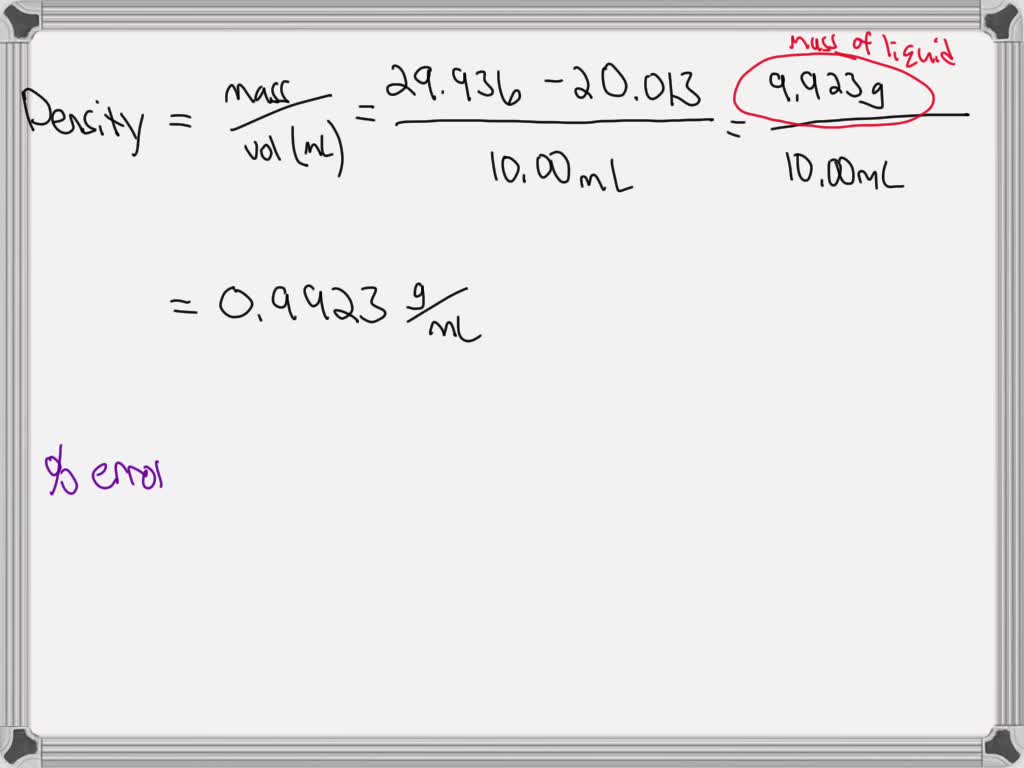 mass of liquid
Density = mass/vol (mL) = 29.936 - 20.013/10.00 mL = 9.923g/10.00mL
= 0.9923 g/mL
% error